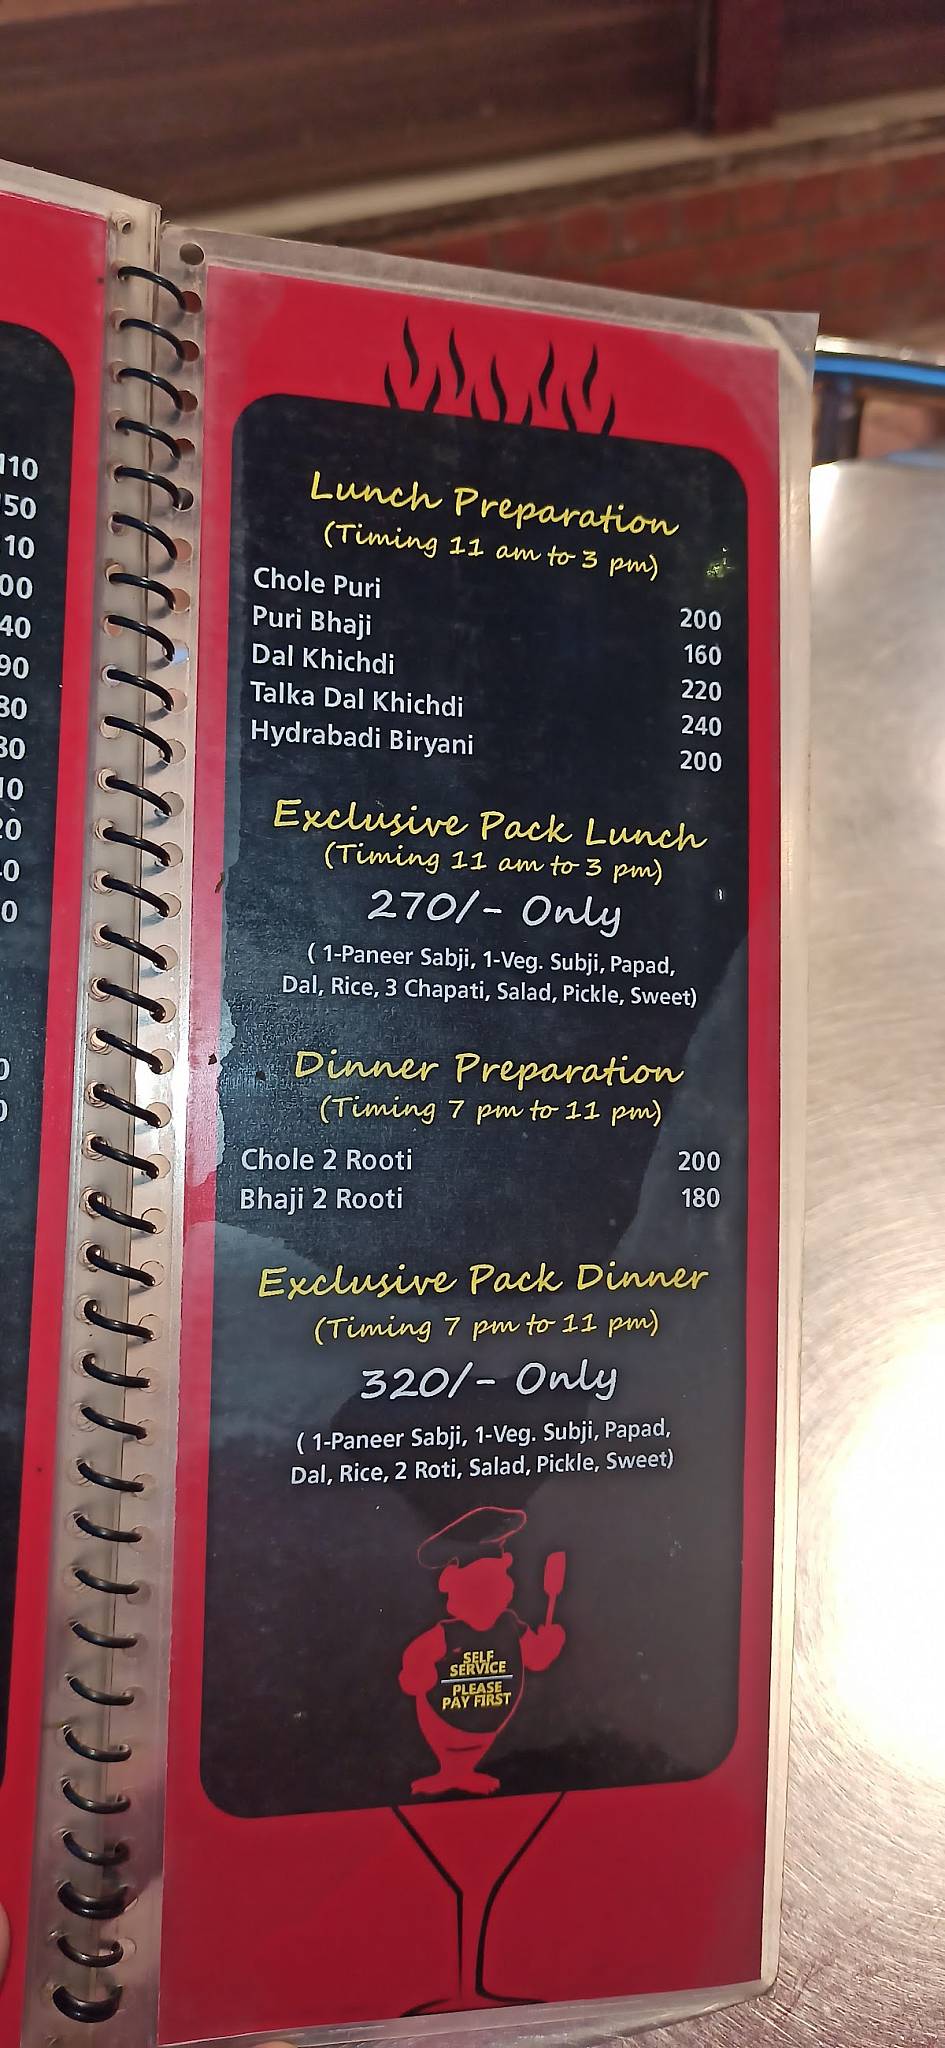 110
150
Lunch Preparation
(Timing 11 am to 3 pm)
Chole Puri 200
Puri Bhaji 160
Dal Khichdi 220
Talka Dal Khichdi 240
Hydrabadi Biryani 200
Exclusive Pack Lunch
(Timing 11 am to 3 pm)
270/- Only
( 1-Paneer Sabji, 1-Veg. Subji, Papad,
Dal, Rice, 3 Chapati, Salad, Pickle, Sweet)
Dinner Preparation
(Timing 7 pm to 11 pm)
Chole 2 Rooti 200
Bhaji 2 Rooti 180
Exclusive Pack Dinner
(Timing 7 pm to 11 pm)
320/- Only
( 1-Paneer Sabji, 1-Veg. Subji, Papad,
Dal, Rice, 2 Roti, Salad, Pickle, Sweet)
SELF
SERVICE
PLEASE
PAY FIRST